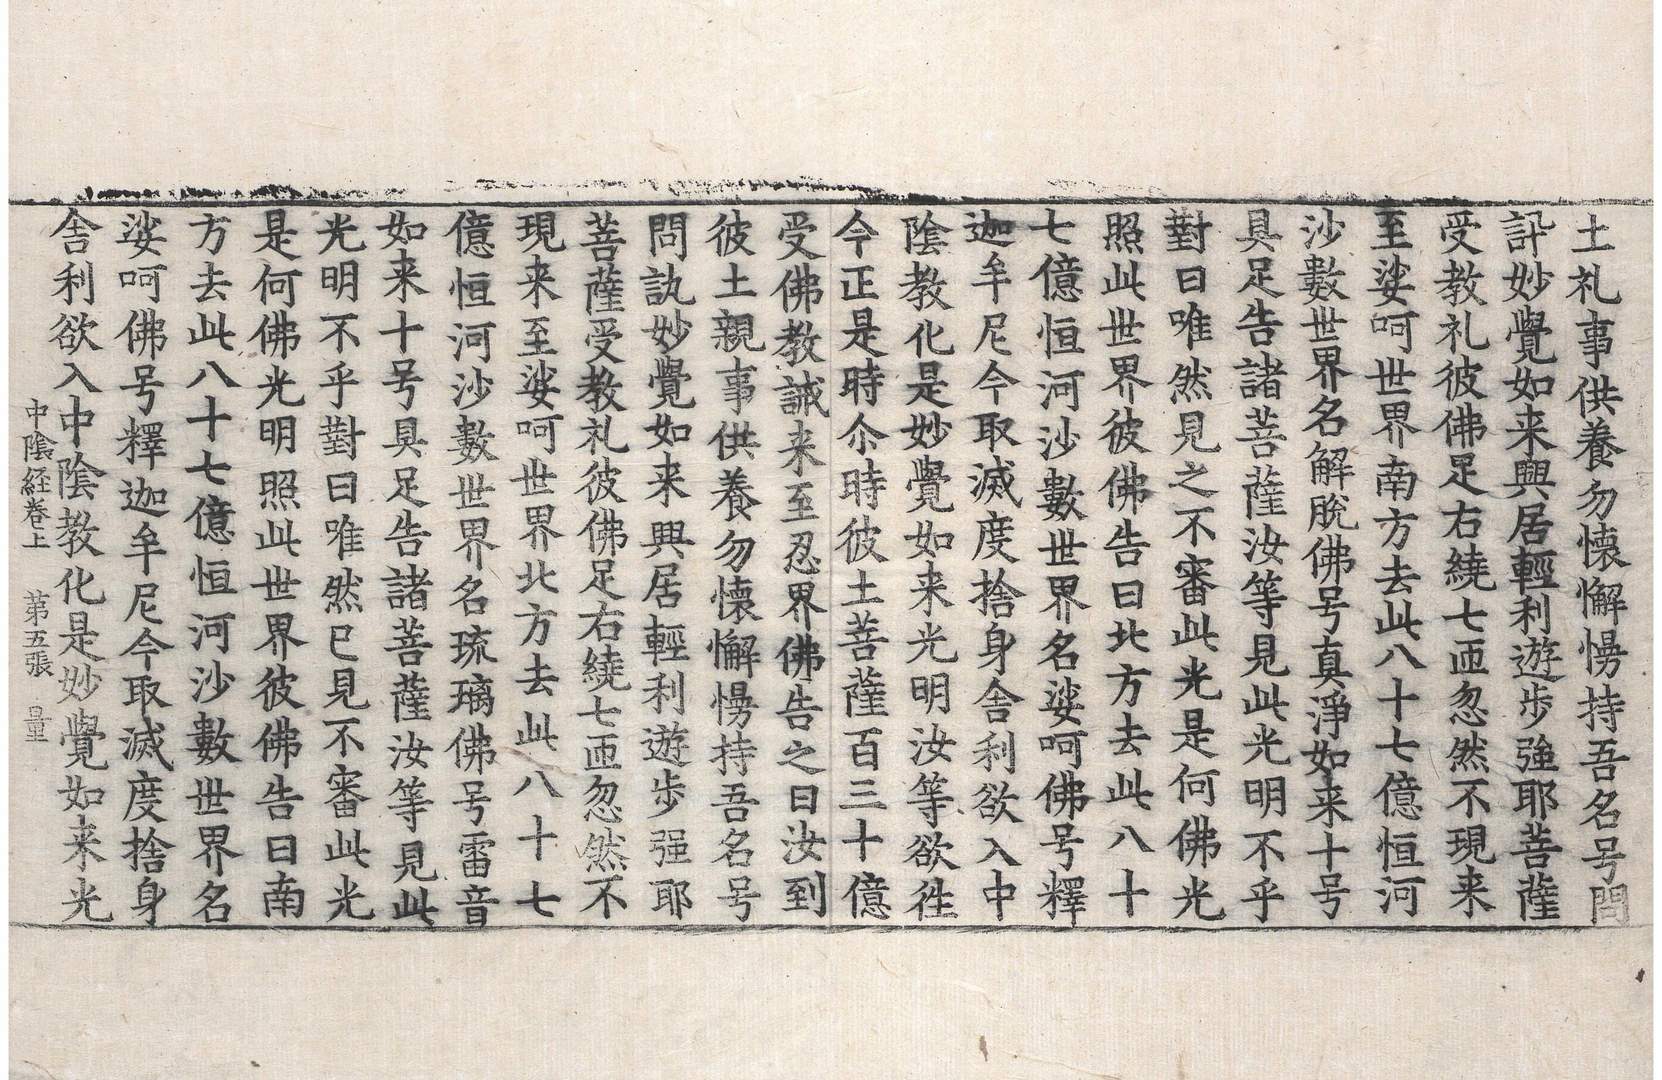 土礼事供養勿懐懈慢持吾名号問
訊妙覺如来興居輕利遊步強耶菩薩
受教礼彼佛足右繞七匝忽然不現来
至娑呵世界南方去此八十七億恒河
沙數世界名解脫佛号真淨如来十号
具足告諸菩薩汝等見此光明不乎
對曰唯然見之不審此光是何佛光
照此世界彼佛告曰北方去此八十
七億恒河沙數世界名娑呵佛号釋
迦牟尼今取滅度捨身舍利欲入中
陰教化是妙覺如来光明汝等欲徃
今正是時尒時彼土菩薩百三十億
受佛教誡来至忍界佛告之曰汝到
彼土親事供養勿懐懈慢持吾名号
問訊妙覺如来興居輕利遊步强耶
菩薩受教礼彼佛足右繞七匝忽然不
現来至娑呵世界北方去此八十七
億恒河沙數世界名琉璃佛号雷音
如来十号具足告諸菩薩汝等見此
光明不乎對曰唯然已見不審此光
是何佛光明照此世界彼佛告曰南
方去此八十七億恒河沙數世界名
娑呵佛号釋迦牟尼今取滅度捨身
舎利欲入中陰教化是妙覺如来光
中陰経卷上 第五張 量